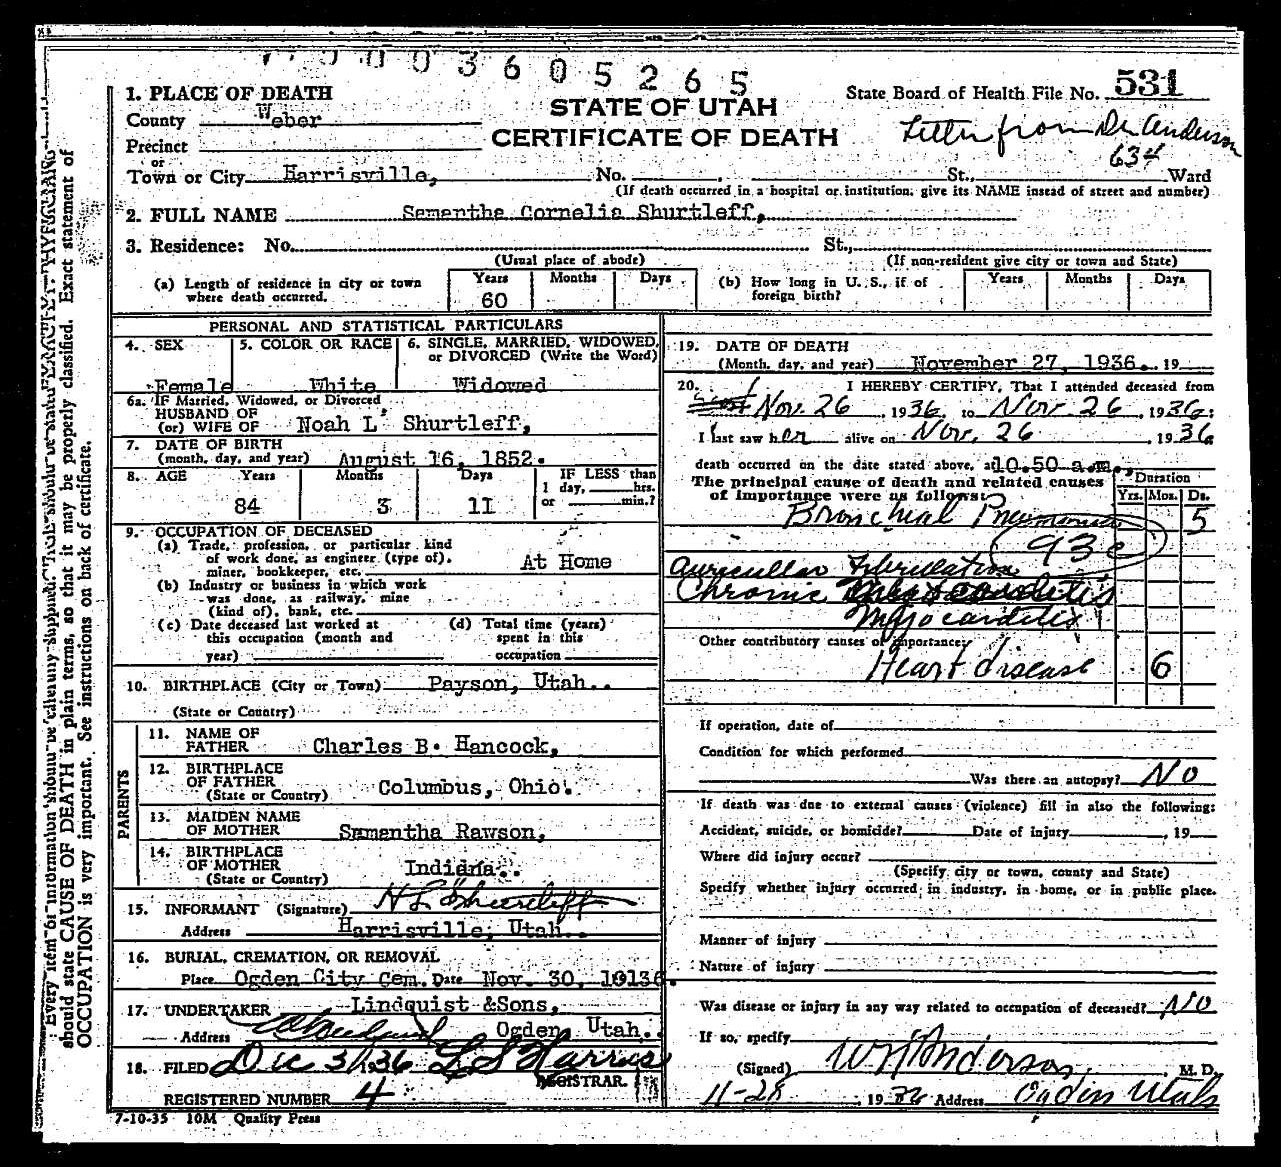 0003605265
1. PLACE OF DEATH
STATE OF UTAH
State Board of Health File No. 531
County Weber
CERTIFICATE OF DEATH
Letter from Dr Anderson
634
Precinct
or
Town or City Harrisville, No. , St., Ward
(If death occurred in a hospital or institution, give its NAME insead of street and number)
2. FULL NAME Samantha Cornelia Shurtleff,
3. Residence: No. St.,
(Usual place of abode) (If non-resident give city or town and State)
(a) Length of residence in city or town where death occurred. Years 60 Months Days
(b) How long in U. S., if of foreign birth? Years Months Days
PERSONAL AND STATISTICAL PARTICULARS
4. SEX 5. COLOR OR RACE 6. SINGLE, MARRIED, WIDOWED, or DIVORCED (Write the Word)
Female White Widowed
6a. IF Married, Widowed, or Divorced
HUSBAND OF
(or) WIFE OF Noah L Shurtleff,
7. DATE OF BIRTH
(month, day, and year) August 16, 1852.
8. AGE Years Months Days IF LESS than
1 day, hrs.
or min.?
84 3 11
9. OCCUPATION OF DECEASED
(a) Trade, profession, or particular kind
of work done, as engineer (type of),
miner, bookkeeper, etc. At Home
(b) Industry or business in which work
was done, as railway, mine
(kind of), bank, etc.
(c) Date deceased last worked at
this occupation (month and
year)
(d) Total time (years)
spent in this
occupation
10. BIRTHPLACE (City or Town) Payson, Utah..
(State or Country)
PARENTS
11. NAME OF
FATHER Charles B. Hancock,
12. BIRTHPLACE
OF FATHER
(State or Country) Columbus, Ohio.
13. MAIDEN NAME
OF MOTHER Samantha Rawson,
14. BIRTHPLACE
OF MOTHER
(State or Country) Indiana..
15. INFORMANT (Signature) H L Shurtleff
Address Harrisville, Utah..
16. BURIAL, CREMATION, OR REMOVAL
Place Ogden City Cem. Date Nov. 30, 19136.
17. UNDERTAKER Lindquist &Sons,
Address Ogden, Utah..
18. FILED Dec 31, 36 L S Harris
REGISTRAR.
REGISTERED NUMBER 4
7-10-35 10M Quality Press
19. DATE OF DEATH
(Month, day, and year) November 27, 1936. 19
20. I HEREBY CERTIFY, That I attended deceased from
Nov. 26, 1936, to Nov. 26, 1936;
I last saw her alive on Nov. 26, 1936
death occurred on the date stated above, at 10.50 a.m.,
The principal cause of death and related causes
of importance were as follows:
Duration
Yrs. Mos. Ds.
Bronchial Pneumonia 5
93c
Auricular Fibrulation
Chronic
Myocarditis
Other contributory causes of importance:
Heart disease 6
If operation, date of
Condition for which performed
Was there an autopsy? No
If death was due to external causes (violence) fill in also the following:
Accident, suicide, or homicide? Date of injury , 19
Where did injury occur?
(Specify city or town, county and State)
Specify whether injury occurred in industry, in home, or in public place.
Manner of injury
Nature of injury
Was disease or injury in any way related to occupation of deceased? No
If so, specify
(Signed) W H Anderson, M. D.
11-28, 1936 Address Ogden Utah
should state CAUSE OF DEATH in plain terms, so that it may be properly classified. Exact statement of
OCCUPATION is very important. See instructions on back of certificate.